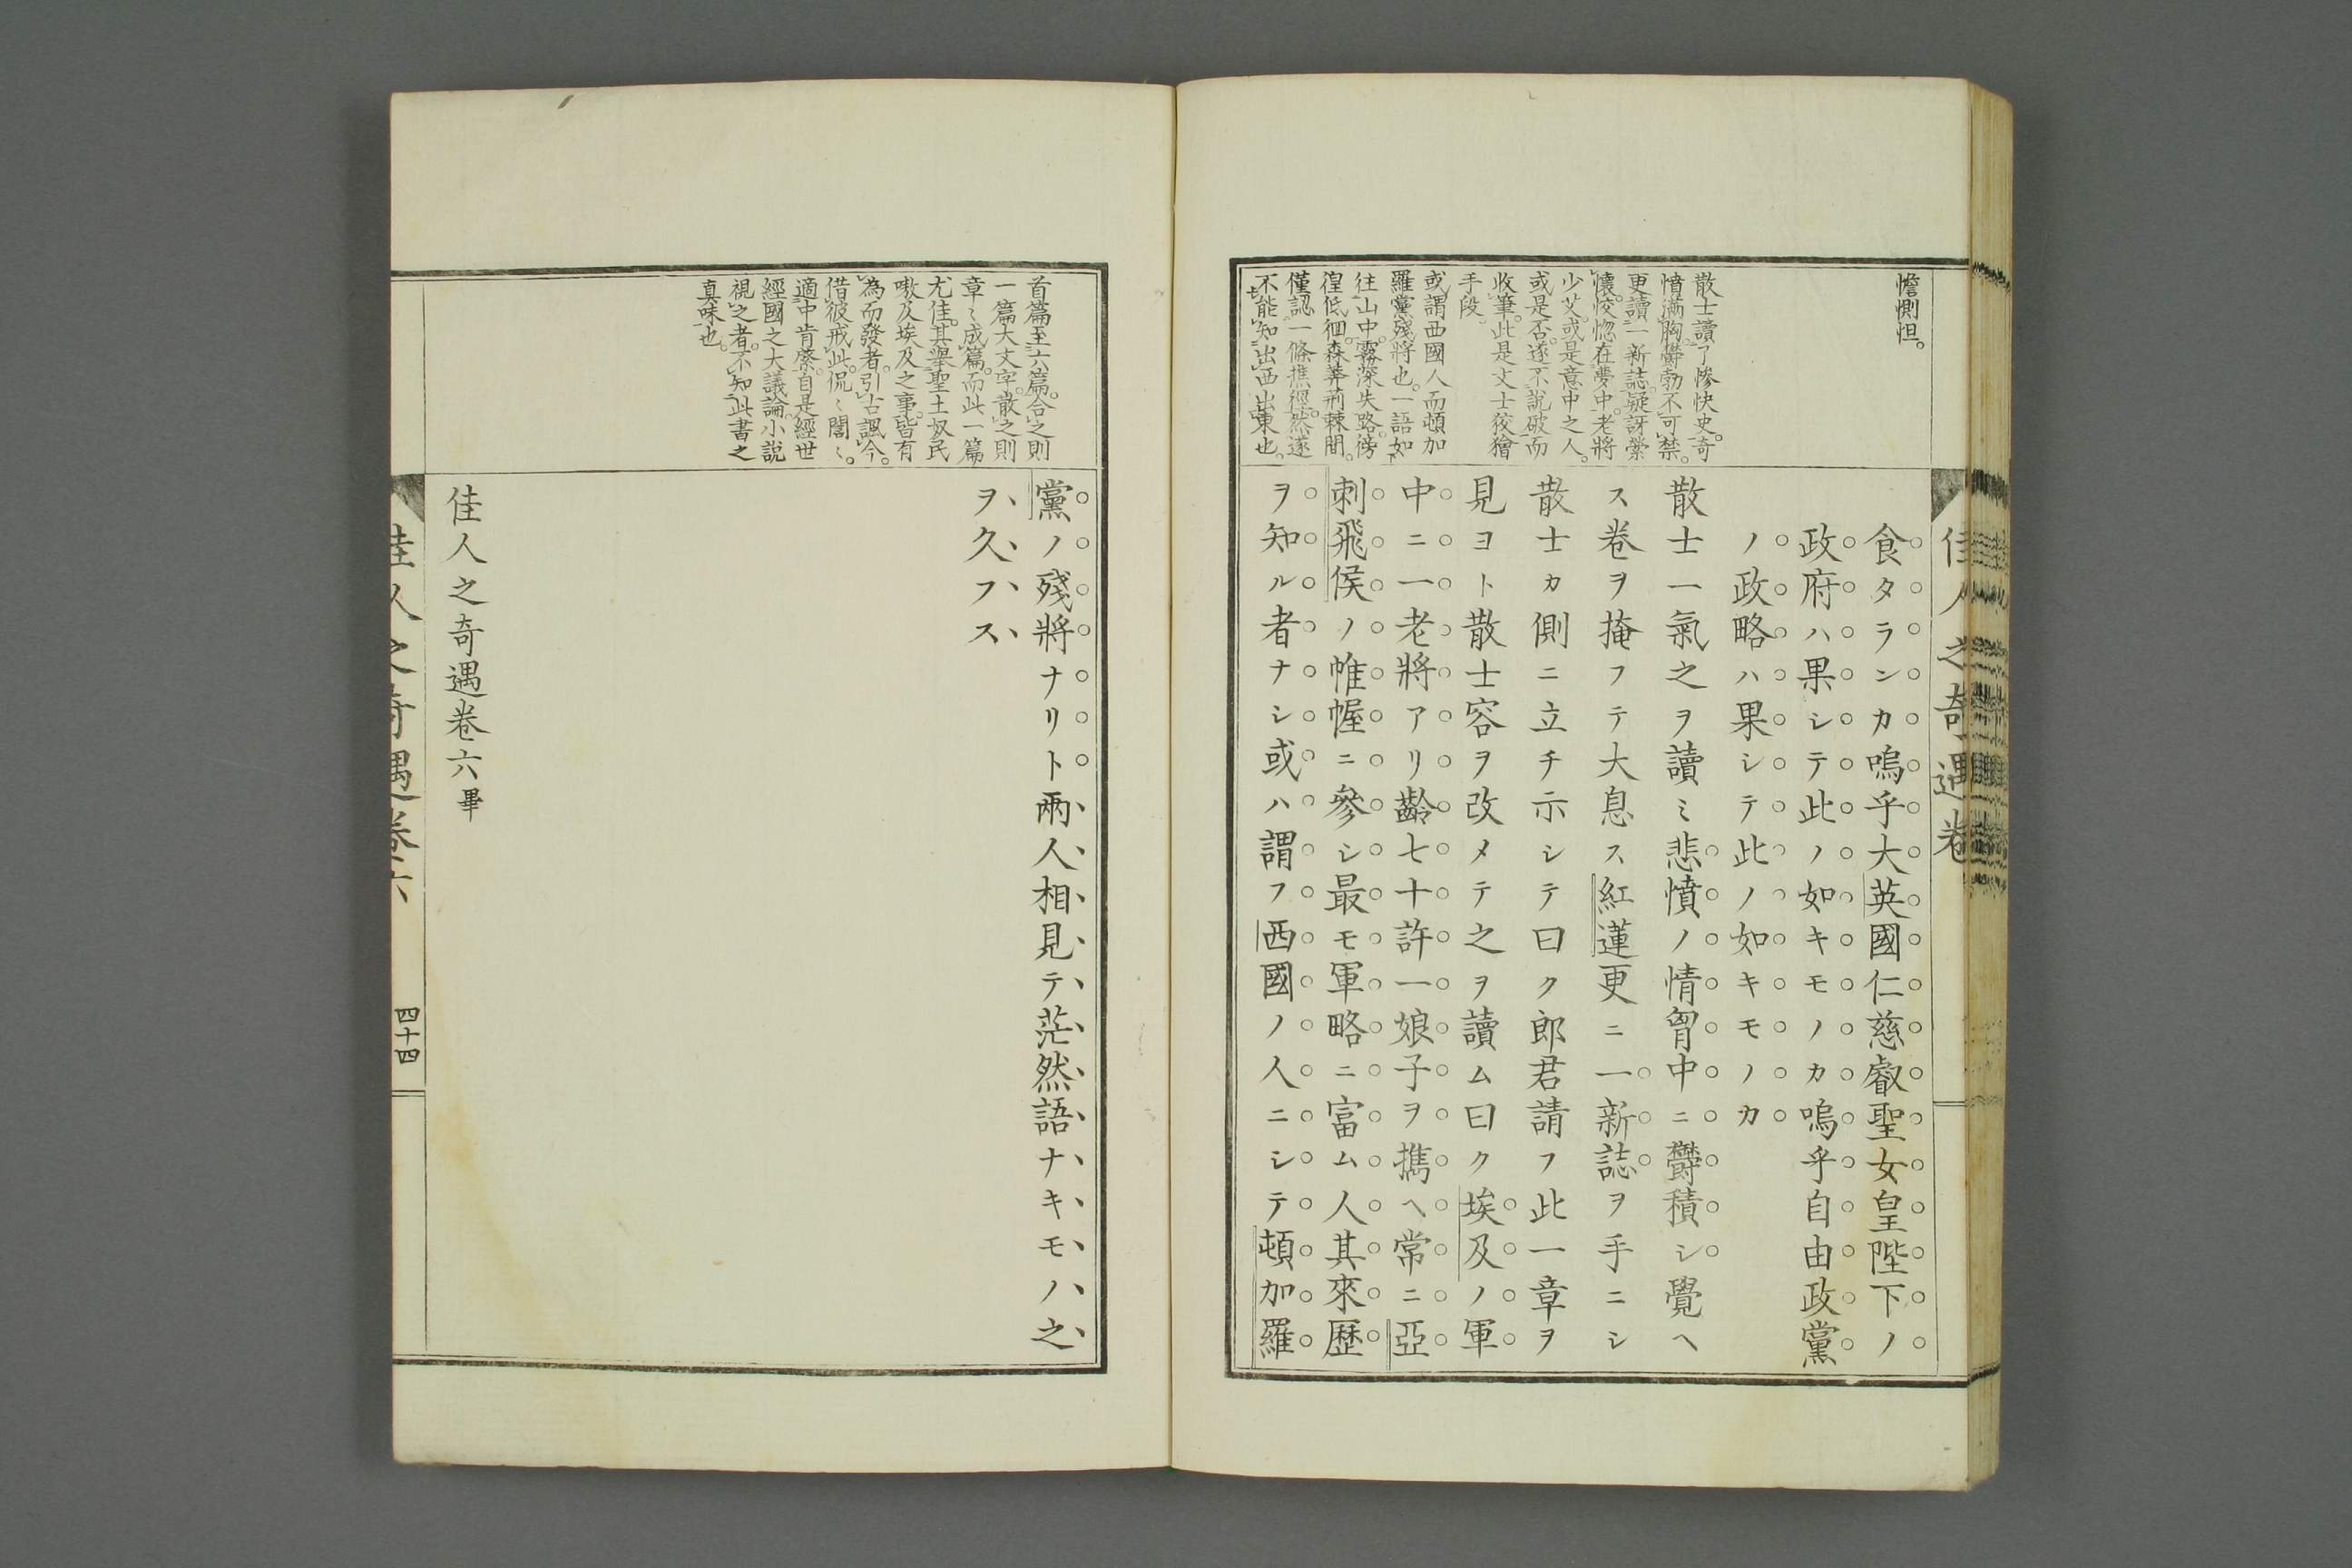 佳人之奇遇卷
憺惻怛。
食タランカ嗚乎大英國仁慈叡聖女皇陛下ノ
政府ハ果シテ此ノ如キモノカ嗚乎自由政黨
ノ政略ハ果シテ此ノ如キモノカ
散士讀了慘快史。奇
憤滿胸。鬱勃不可禁。
更讀一新誌。疑訝縈
懷。恍惚在夢中。老將
少艾。或是意中之人。
或是否。遂不說破而
收筆。此是文士狡獪
手段。
或謂西國人而頓加
羅黨殘將也。一語如
往山中。霧深失路。徬
徨低徊。森莽荊棘間。
僅認一條樵徑。然遂
不能知出西出東也。
散士一氣之ヲ讀ミ悲憤ノ情胷中ニ欝積シ覺ヘ
ス卷ヲ掩フテ大息ス紅蓮更ニ一新誌ヲ手ニシ
散士カ側ニ立チ示シテ曰ク郎君請フ此一章ヲ
見ヨト散士容ヲ改メテ之ヲ讀ム曰ク埃及ノ軍
中ニ一老將アリ齡七十許一娘子ヲ携ヘ常ニ亞
刺飛侯ノ帷幄ニ參シ最モ軍略ニ富ム人其來歷
ヲ知ル者ナシ或ハ謂フ西國ノ人ニシテ頓加羅
首篇至六篇。合之則
一篇大文字。散之則
章〻成篇。而此一篇
尤佳。其舉聖土奴民
嗷及埃及之事。皆有
為而發者。引古諷今。
借彼戒此。侃〻誾〻。
適中肯綮。自是經世
經國之大議論。小說
視之者。不知此書之
真味也。
黨ノ殘將ナリト兩人相見テ茫然語ナキモノハ之
ヲ久フス
佳人之奇遇卷六畢
佳人之奇遇卷六
四十四